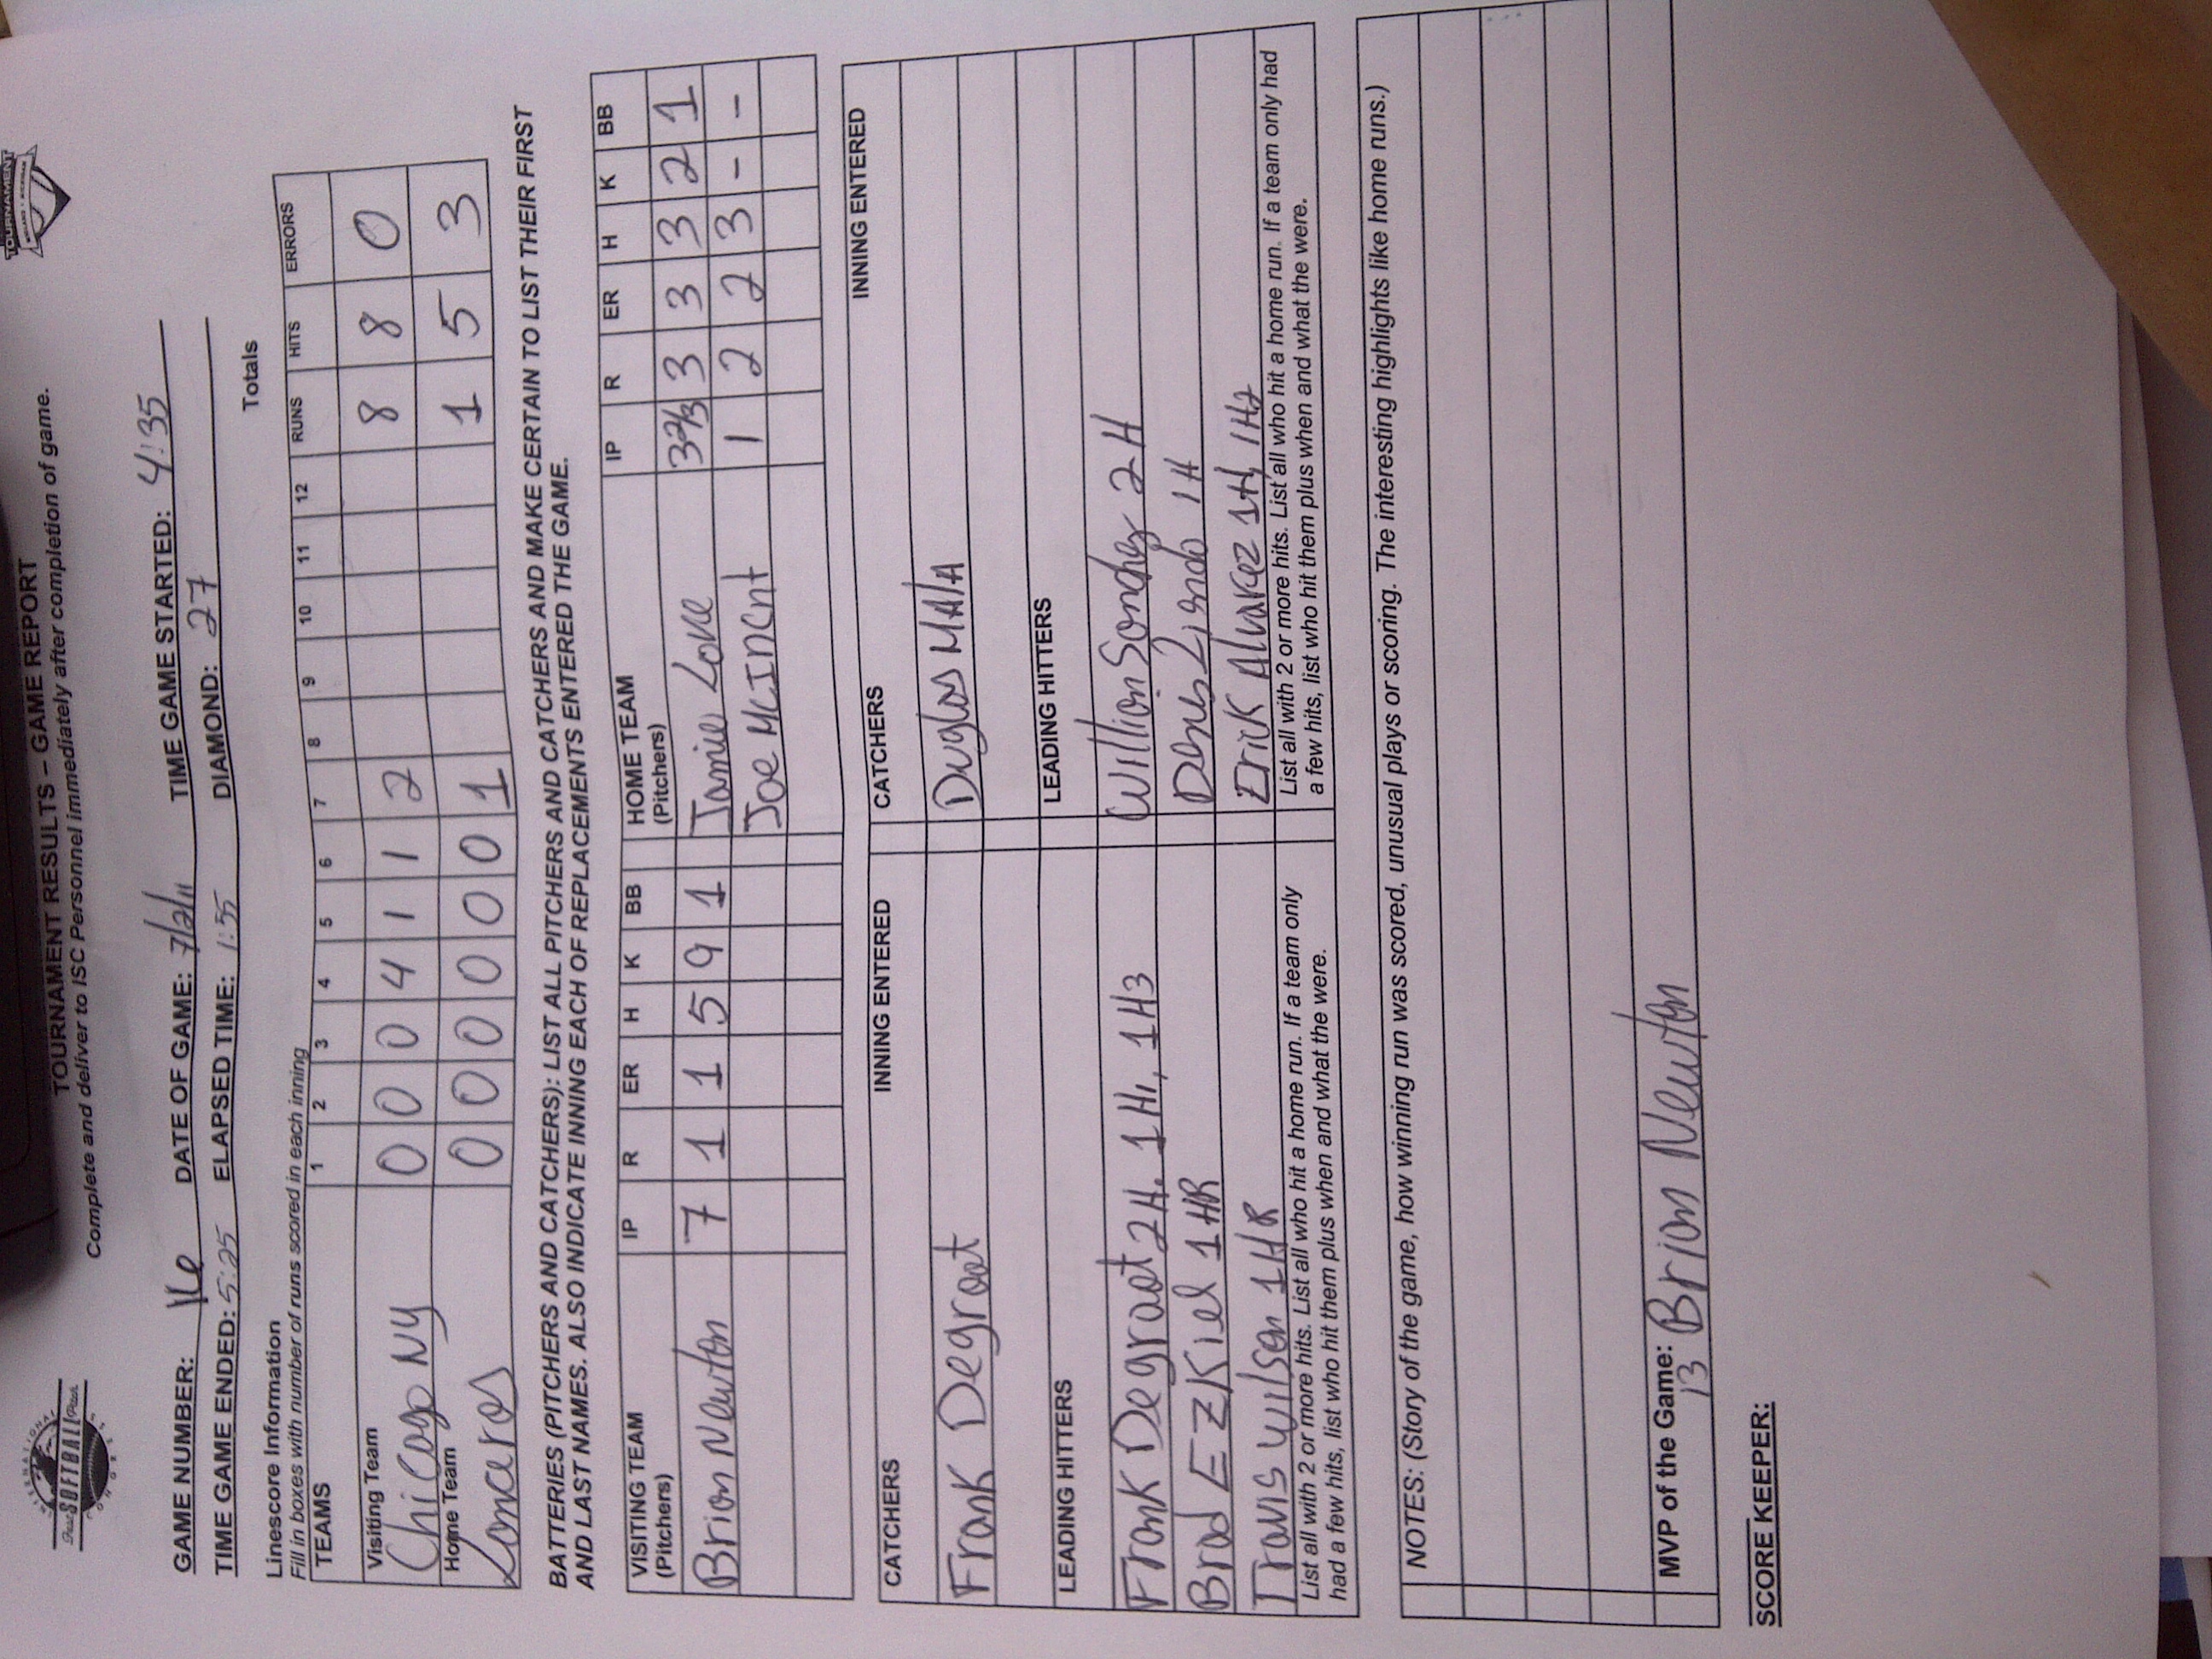 TOURNAMENT
INTERNATIONAL
Fast SOFTBALL Pitch
TOURNAMENT RESULTS – GAME REPORT
Complete and deliver to ISC Personnel immediately after completion of game.
GAME NUMBER: 16 DATE OF GAME: 7/2/11 TIME GAME STARTED: 4:35
TIME GAME ENDED: 5:25 ELAPSED TIME: 1:55 DIAMOND: 27
Linescore Information
Fill in boxes with number of runs scored in each inning
Totals
TEAMS 1 2 3 4 5 6 7 8 9 10 11 12 RUNS HITS ERRORS
Visiting Team
Chicago NY 0 0 0 4 1 1 2 8 8 0
Home Team
Lonceros 0 0 0 0 0 0 1 1 5 3
BATTERIES (PITCHERS AND CATCHERS): LIST ALL PITCHERS AND CATCHERS AND MAKE CERTAIN TO LIST THEIR FIRST
AND LAST NAMES. ALSO INDICATE INNING EACH OF REPLACEMENTS ENTERED THE GAME.
VISITING TEAM IP R ER H K BB HOME TEAM IP R ER H K BB
(Pitchers) (Pitchers)
Brion Newton 7 1 1 5 9 1 Jamie Love 3 2/3 3 3 3 2 1
Joe McIncnt 1 2 2 3 - -
CATCHERS INNING ENTERED CATCHERS INNING ENTERED
Frank Degroot Duglos MAIA
LEADING HITTERS LEADING HITTERS
Frank Degroot 2H. 1H1, 1H3 Willion Sonchez 2H
Brad EZKiel 1HR 1H
Travis Wilson 1HR Erick Alvarez 1H, 1H2
List all with 2 or more hits. List all who hit a home run. If a team only
had a few hits, list who hit them plus when and what the were.
List all with 2 or more hits. List all who hit a home run. If a team only had
a few hits, list who hit them plus when and what the were.
NOTES: (Story of the game, how winning run was scored, unusual plays or scoring. The interesting highlights like home runs.)
MVP of the Game: Brion Newton
13
SCORE KEEPER: